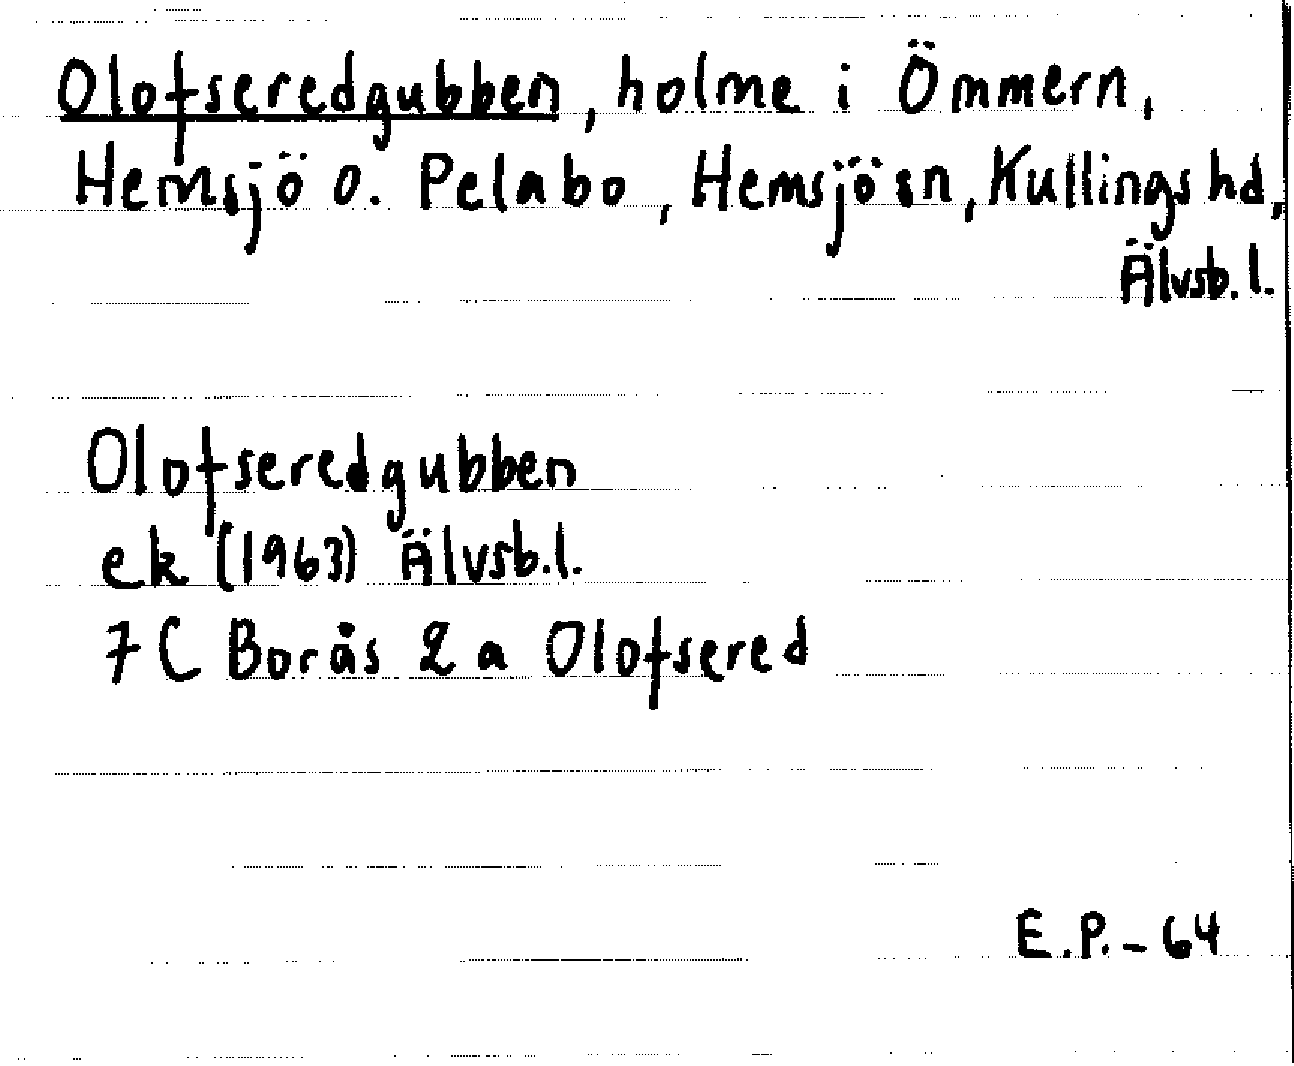 Olofseredgubben, holme i Ömmern,
Hemsjö o. Pelabo, Hemsjö sn, Kullings hd,
Älvsb. l.
Olofseredgubben
ek (1963) Älvsb. l.
7 C Borås 2 a Olofsered
E.P. - 64